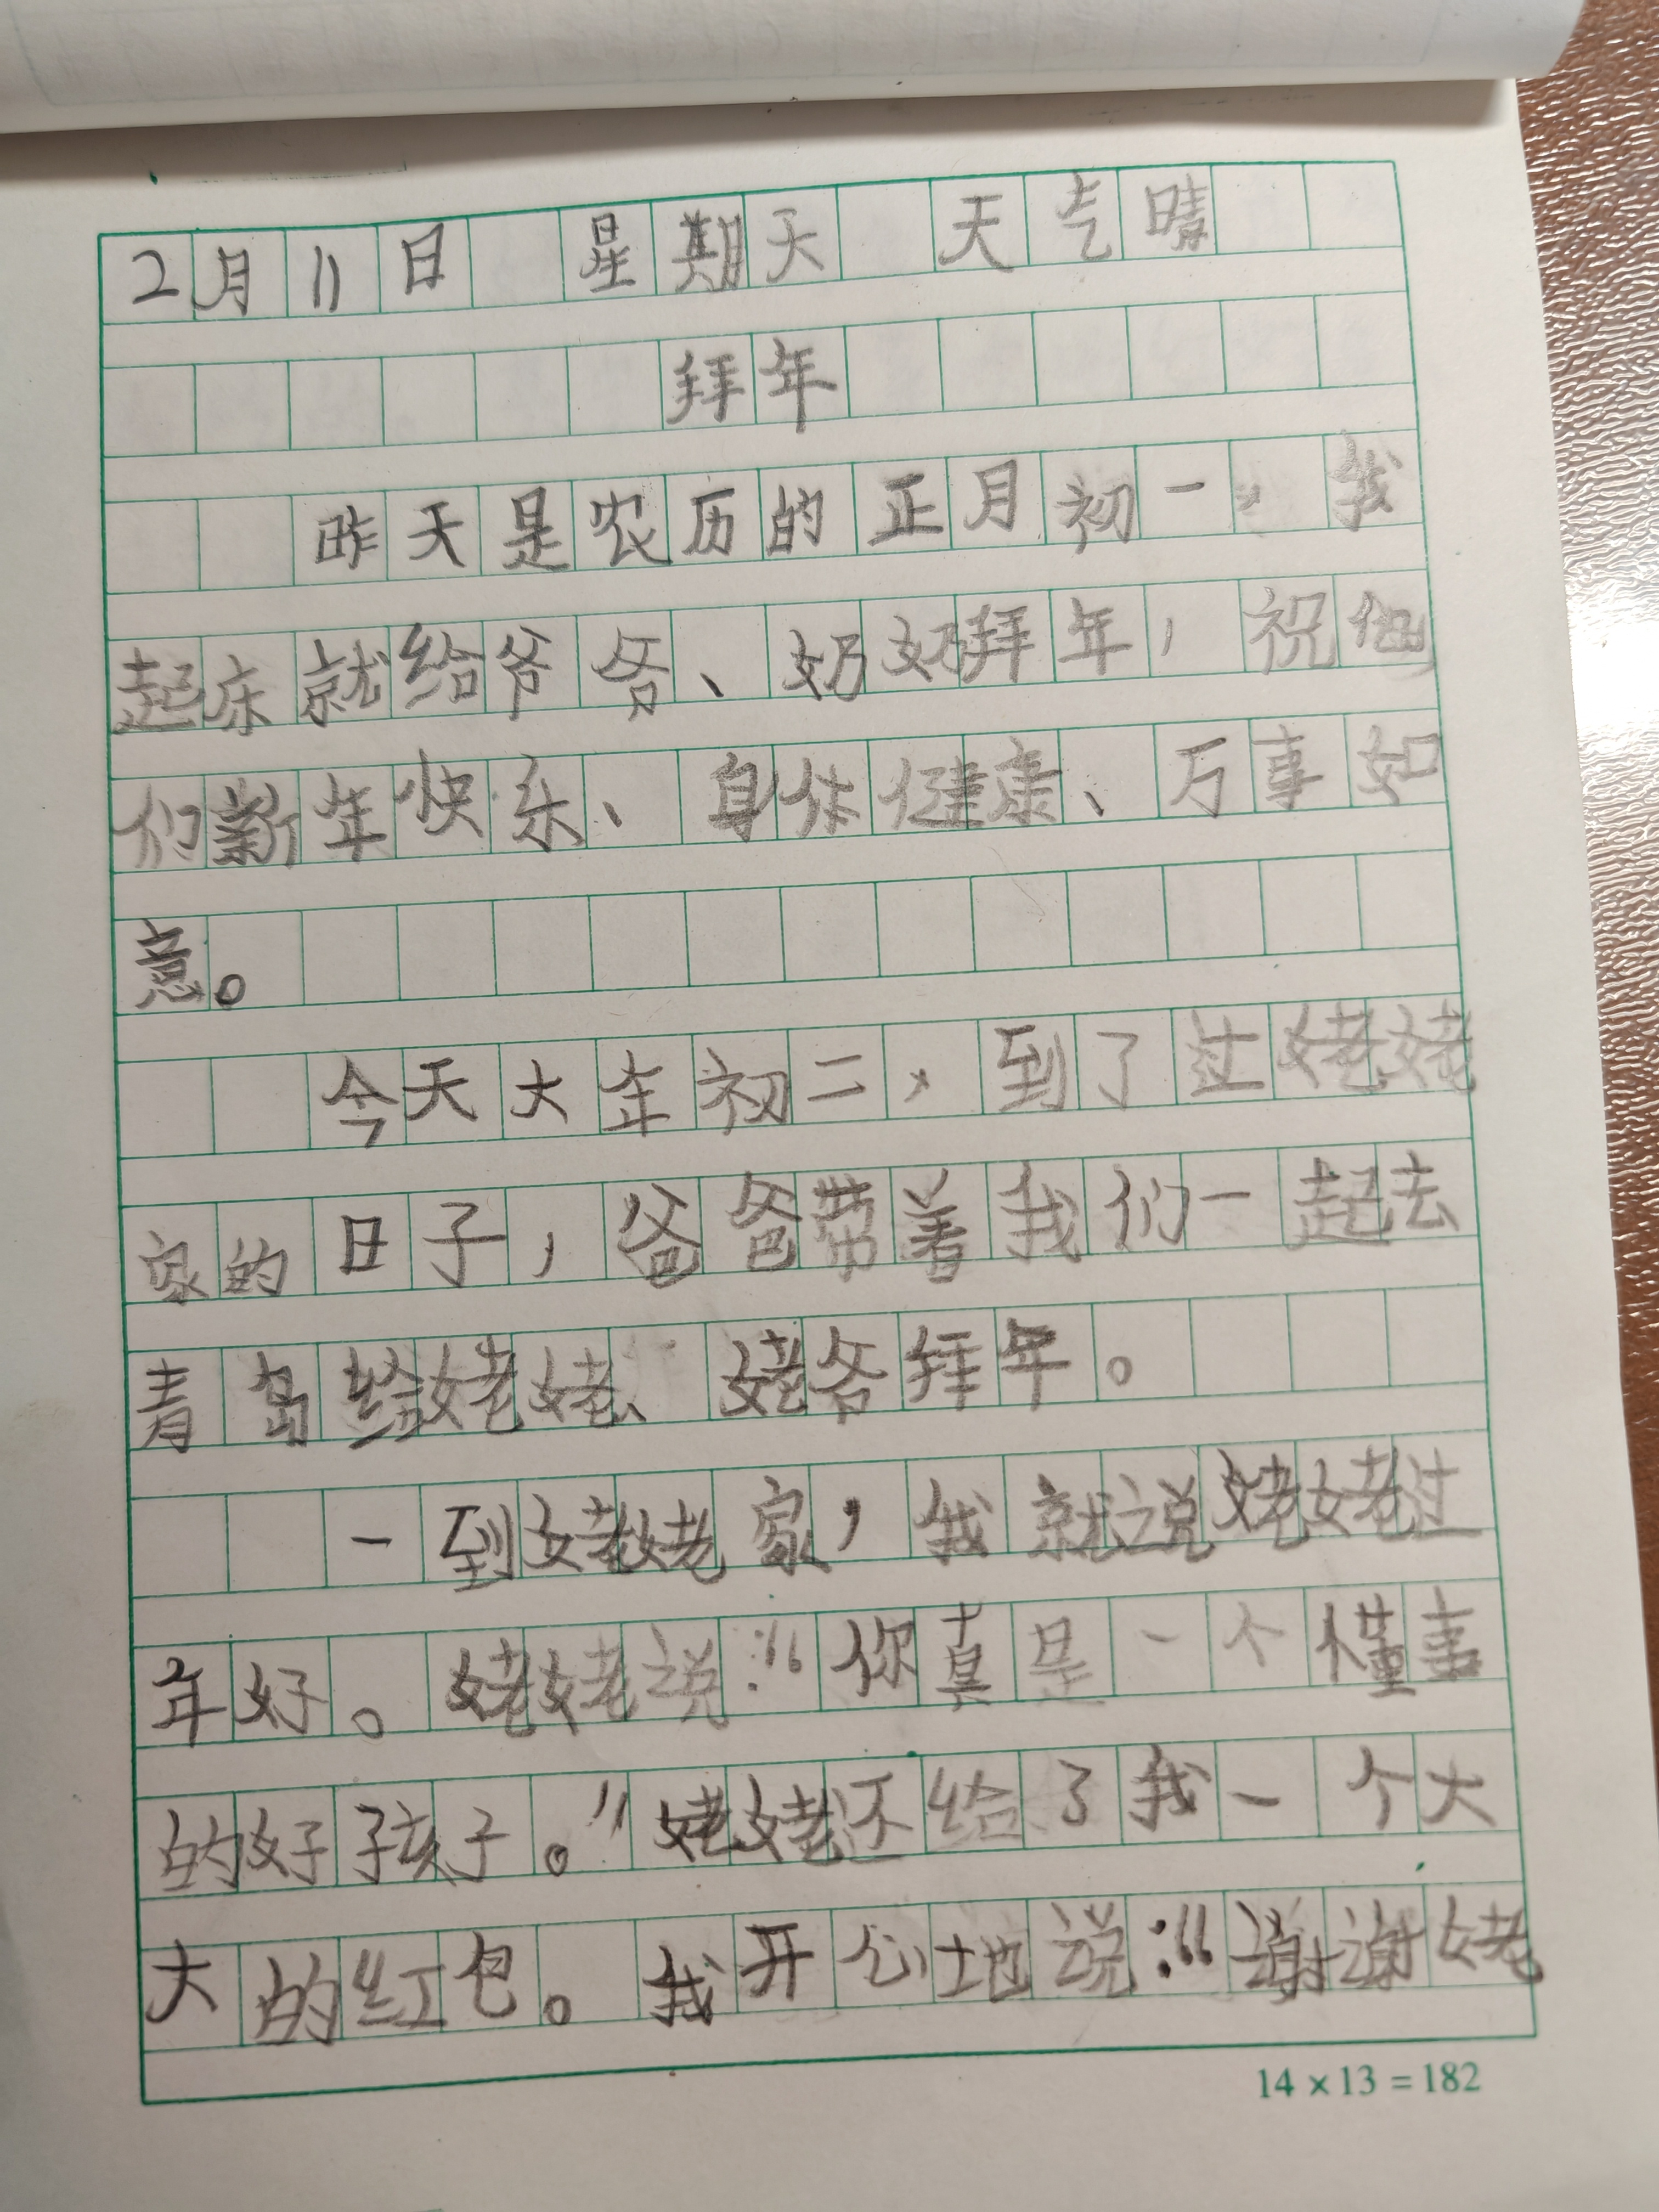 2月11日 星期天 天气晴
拜年
昨天是农历的正月初一,我
起床就给爷爷、奶奶拜年,祝他
们新年快乐、身体健康、万事如
意。
今天大年初二,到了过姥姥
家的日子,爸爸带着我们一起去
青岛给姥姥、姥爷拜年。
一到姥姥家,我就说姥姥过
年好。姥姥说:“你真是一个懂事
的好孩子。”姥姥还给了我一个大
大的红包。我开心地说:“谢谢姥
14×13=182